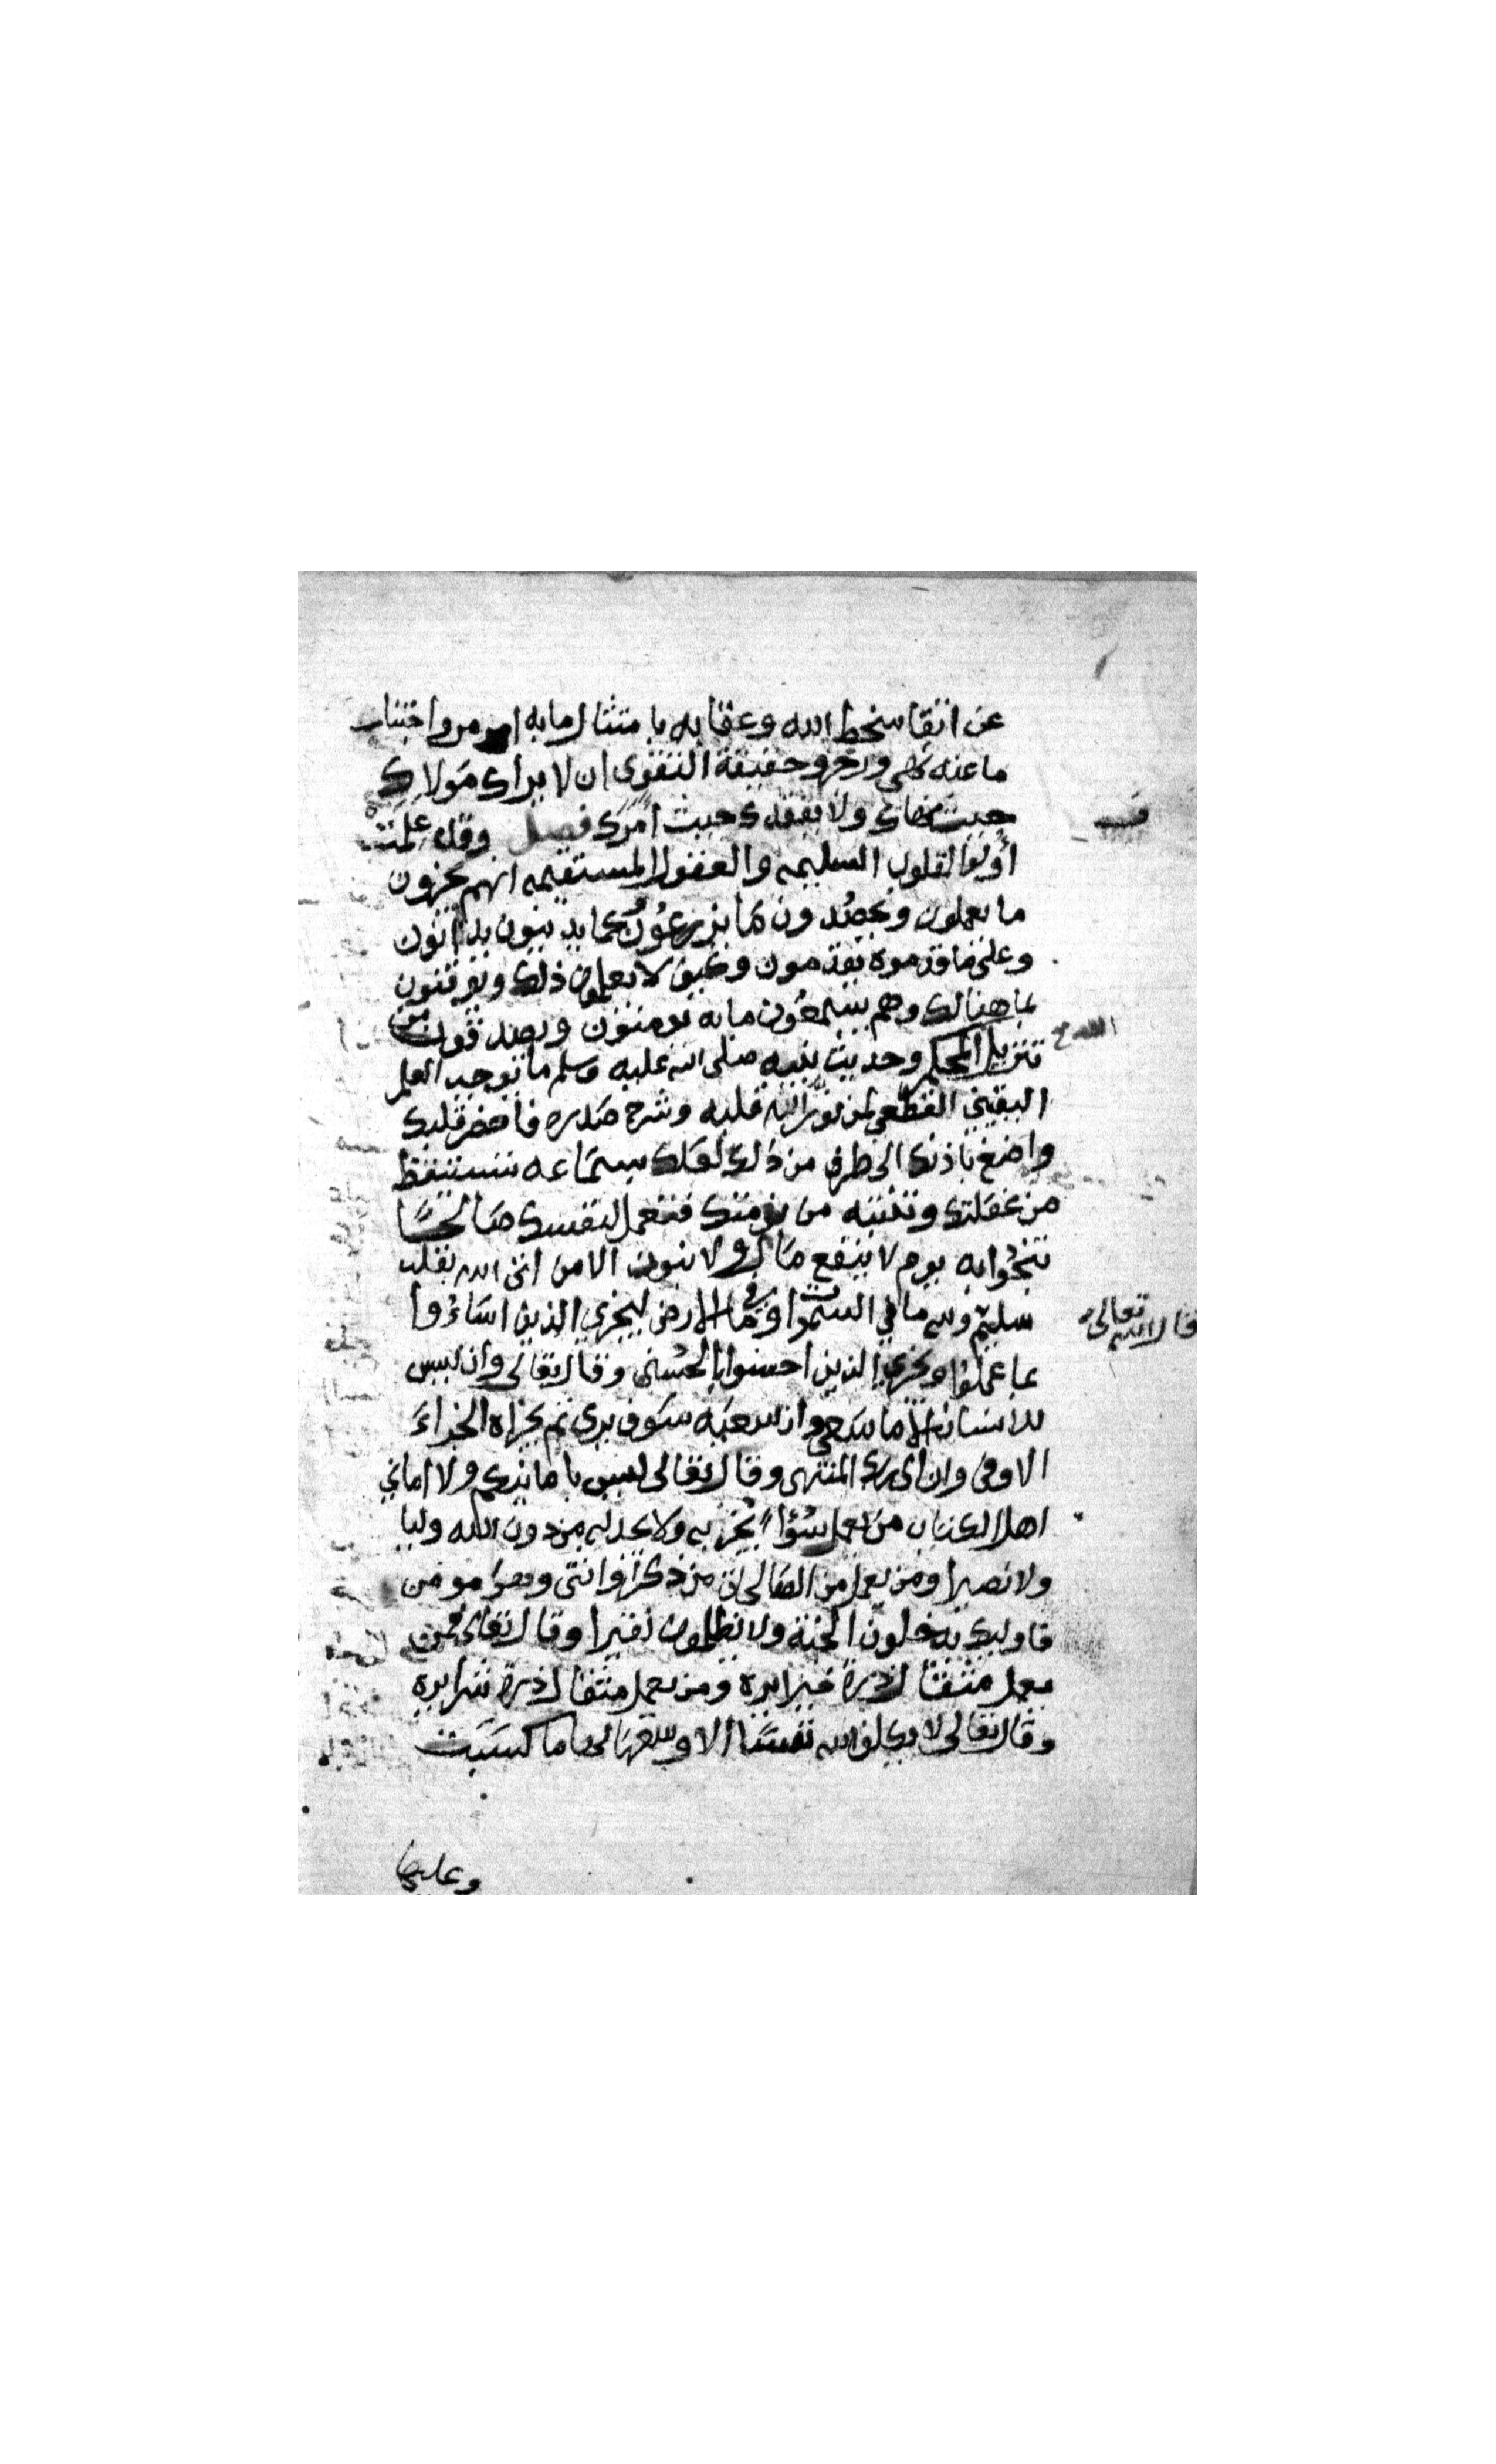 عن اتقا سخط الله وعقابه بامتثال ما به امر واجتناب
ما عنه نهى وزجر وحقيقة التقوى ان لا يراك مولاك
حيث نهاك ولا يفقدك حيث امرك فصل وقد علمت
أولوا القلوب السليمه والعقول المستقيمه انهم يجزون
ما يعملون ويحصُدون ما يزرعُون كما يدينون يدانون
وعلى ما قدموه يقدمون وكيف لا يعلمون ذلك ويوقنون
بما هنالك وهم يسمعُون ما به يومنون ويصدقون من
تنزيل الله المحكم وحديث نبيه صلى الله عليه وسلم ما يوجب العلم
اليقيني القطعي لمن نوّر الله قلبه وشرح صدره فاحضر قلبك
واصغ باذنك الى طرف من ذلك لعلك بسماعه تستيقظ
من غفلتك وتنتبه من نومتك فتعمل لنفسك صالحًا
تنجُوا به يوم لا ينفع مال ولا بنون الا من اتى الله بقلب
سليم قال الله تعالى ولله ما في السموات وما في الارض ليجزي الذين اساءُوا
بما عملوا ويجزي الذين احسنوا بالحُسنى وقال تعالى وان ليس
للانسان الا ما سَعى وان سعيَه سَوف يرى ثم يجزاه الجزاءَ
الاوفى وان الى ربك المنتهى وقال تعالى ليس بامانيكم ولا اماني
اهل الكتاب من يعمل سُؤاً يُجز به ولا يجد له من دون الله وليا
ولا نصيرا ومن يعمل من الصالحات من ذكر او انثى وهو مومن
فاوليك يدخلون الجنة ولا يظلمون نقيرا وقال تعالى فمن
يعمل مثقال ذرة خيرا يره ومن يعمل مثقال ذرة شرا يره
وقال تعالى لا يكلف الله نفسًا الا وسعها لها ما كسَبَت
وعليها